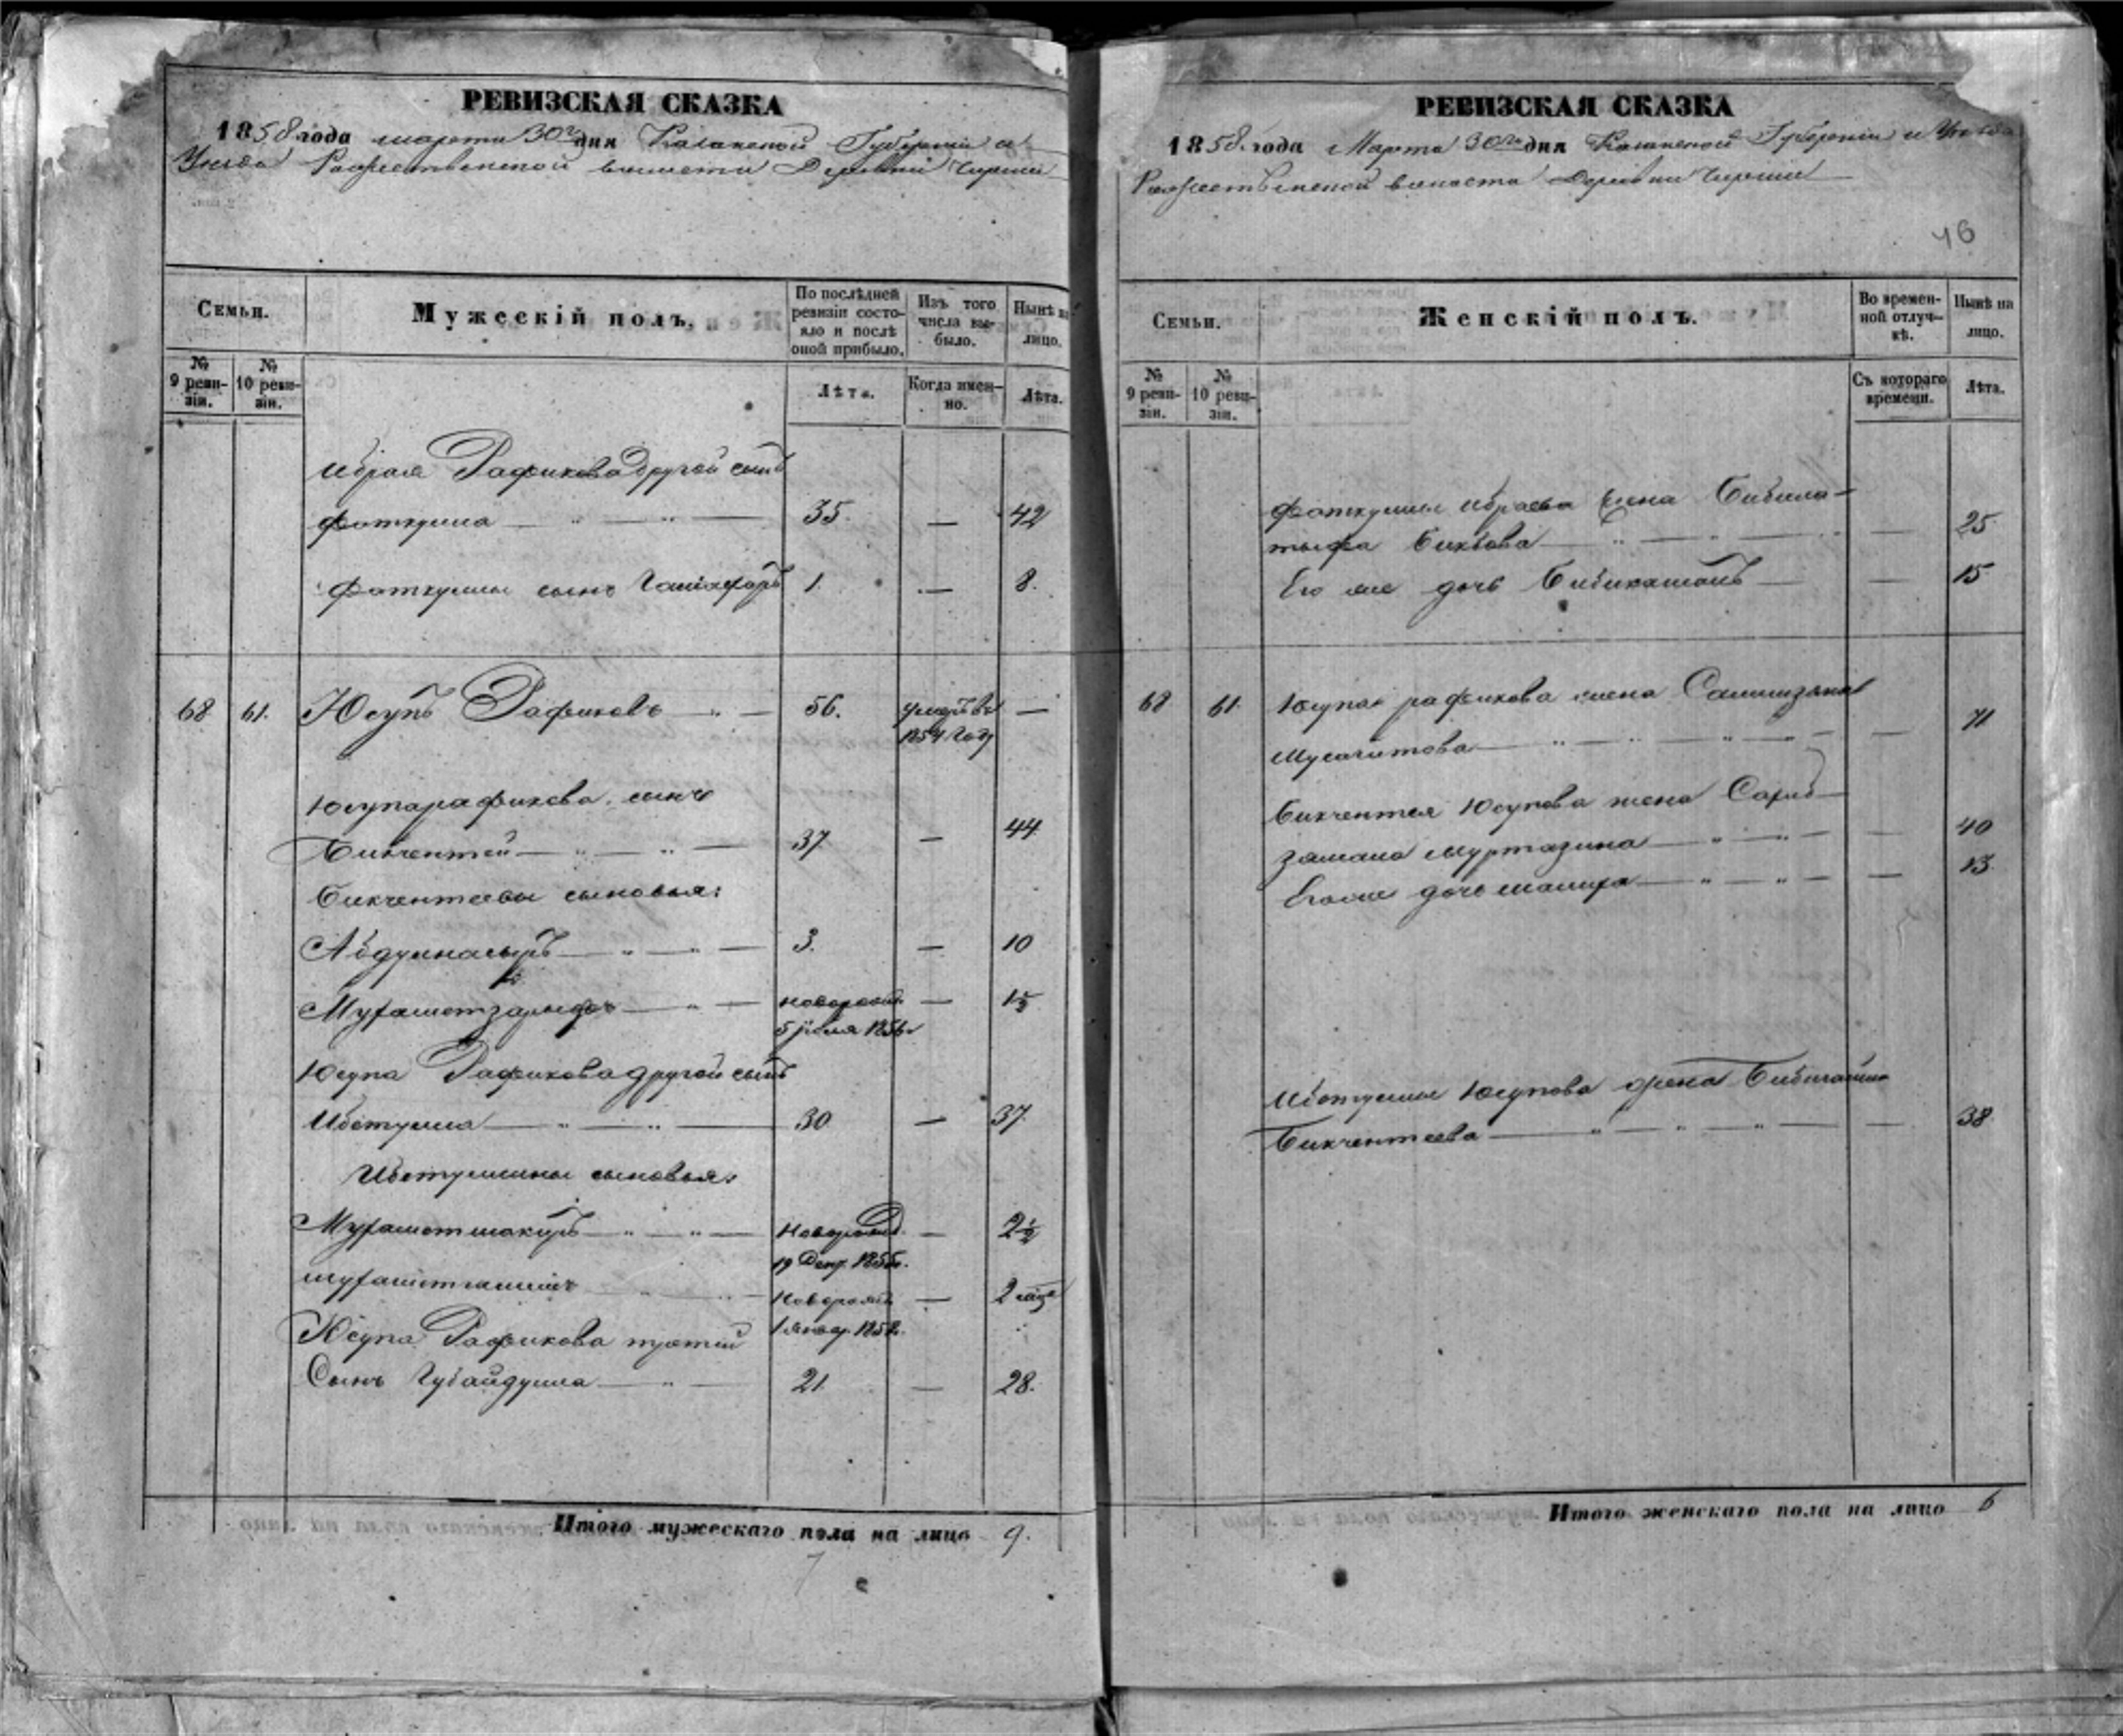 РЕВИЗСКАЯ СКАЗКА
1858 года марта 30го дня Казанской Губернiи и
Уѣзда Рождественской волости Деревни Чирши
Семьи.
Мужескiй полъ.
По послѣдней ревизiи состояло и послѣ оной прибыло.
Изъ того числа выбыло.
Нынѣ на лицо.
№ 9 ревизiи.
№ 10 ревизiи.
Лѣта.
Когда именно.
Лѣта.
Ибрая Рафикова другой сынъ
Фаткулла — " — " — 35. — 42
Фаткуллы сынъ 1. — 8.
68 61. Юсупъ Рафиковъ — " — 56. умеръ въ —
1854 году
Юсупа рафикова сынъ
Бикчентей — " — " — 37 — 44
Бикчентеевы сыновья:
Абдулнасыръ — " — " — 3. — 10
Мухаметзарифъ — " — новорожд. — 1½
5 Iюля 1856
Юсупа Рафикова другой сынъ
Ибетулла — " — " — 30 — 37.
Ибетуллины сыновья:
Мухаметшакиръ — " — " — Новорожд. — 2½
19 1855.
Новорожд — 2
1 янвр. 1858.
Юсупа Рафикова третий
Сынъ Губайдулла — " — 21 — 28.
Итого мужескаго пола на лицо 9.
РЕВИЗСКАЯ СКАЗКА
1858 года Марта 30го дня Казанской Губернiи и Уѣзда
Рождественской волости Деревни Чирши
46
Семьи.
Женскiй полъ.
Во временной отлучкѣ.
Нынѣ на лицо.
№ 9 ревизiи.
№ 10 ревизiи.
Съ котораго времени.
Лѣта.
Фаткуллы Ибраева жена Бибила-
тыфа — " — " — — 25
Его же дочь Бибикамалъ — — 15
68 61. Юсупа рафикова жена
Мусагитова — " — " — " — " — — 71
Бикчентея Юсупова жена Сарб-
замала Муртазина — " — " — — 40
Его же дочь — " — " — — 13.
Ибетуллы Юсупова жена
Бикчентеева — " — " — " — — 38.
Итого женскаго пола на лицо 6